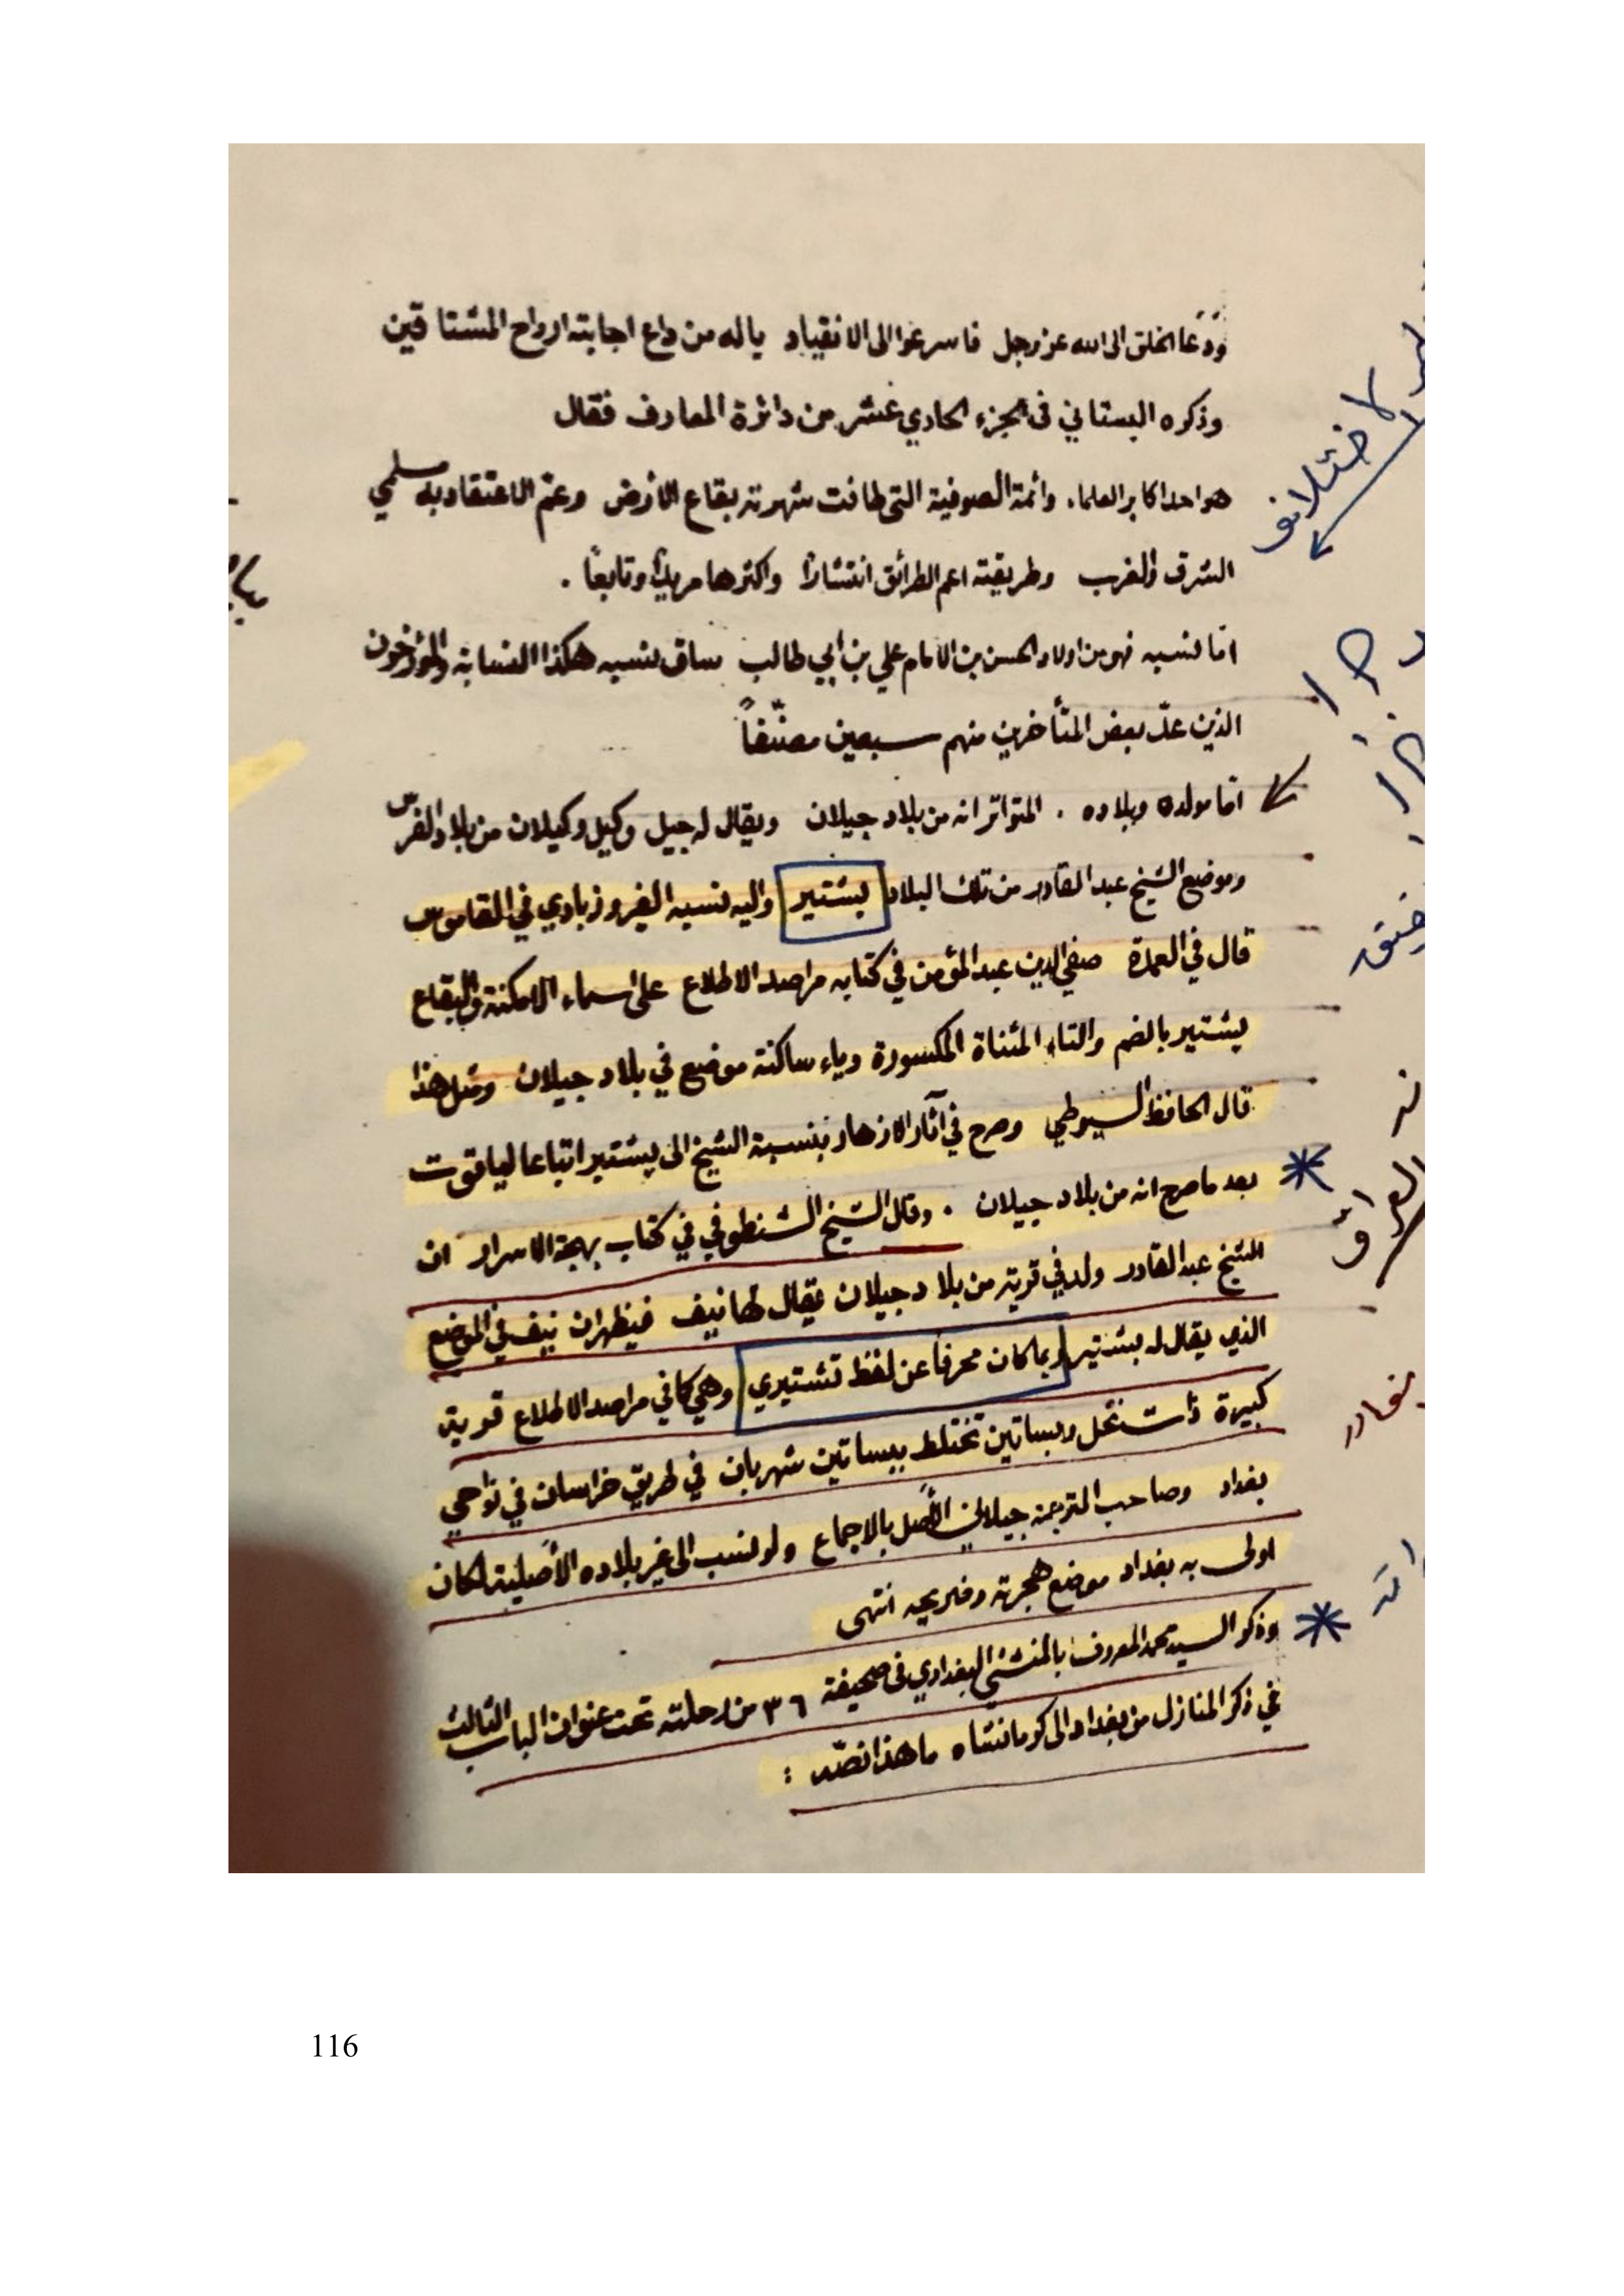 ودعا الخلق الى الله عز وجل فاسرعوا الى الانقياد ياله من داع اجابته ارواح المشتاقين
وذكره البستاني في الجزء الحادي عشر من دائرة المعارف فقال
هو احد اكابر العلماء وائمة الصوفية التي طافت شهرته بقاع الارض وعم الاعتقاد به مسلمي
الشرق والغرب وطريقته اعم الطرائق انتشارا واكثرها مريدا وتابعاً .
امّا نسبه فهو من اولاد الحسن بن الامام علي بن ابي طالب ساق نسبه هكذا النسابة والمؤرخون
الذين عدّ بعض المتأخرين منهم سبعين مصنّفاً
امّا مولده وبلاده . المتواتر انه من بلاد جيلان ويقال له جيل وكيل وكيلان من بلاد الفرس
وموضع الشيخ عبد القادر من تلك البلاد بشتير واليه نسبه الفيروزبادي في القاموس
قال في العمدة صفي الدين عبد المؤمن في كتابه مراصد الاطلاع على اسماء الامكنة والبقاع
بشتير بالضم والتاء المثناة المكسورة وياء ساكنة موضع في بلاد جيلان ومثل هذا
قال الحافظ السيوطي وصرح في آثار الازهار بنسبة الشيخ الى بشتير اتباعا لياقوت
بعد ما صرح انه من بلاد جيلان . وقال الشيخ الشنطوفي في كتاب بهجة الاسرار ان
الشيخ عبد القادر ولد في قرية من بلاد جيلان يقال لها نيف فيظهر ان نيف في الموضع
الذي يقال له بشتير ربما كان محرفاً عن لفظ تشتيري وهي كما في مراصد الاطلاع قرية
كبيرة ذات نخل وبساتين تختلط ببساتين شهربان في طريق خراسان في نواحي
بغداد وصاحب الترجمة جيلاني الأصل بالاجماع ولو نسب الى غير بلاده الأصلية لكان
اولى به بغداد موضع هجرته وضريحه انتهى
وذكر السيد محمد المعروف بالمنشئ البغدادي في صحيفة ٣٦ من رحلته تحت عنوان الباب الثالث
في ذكر المنازل من بغداد الى كومانشاه ما هذا نصّه :
116